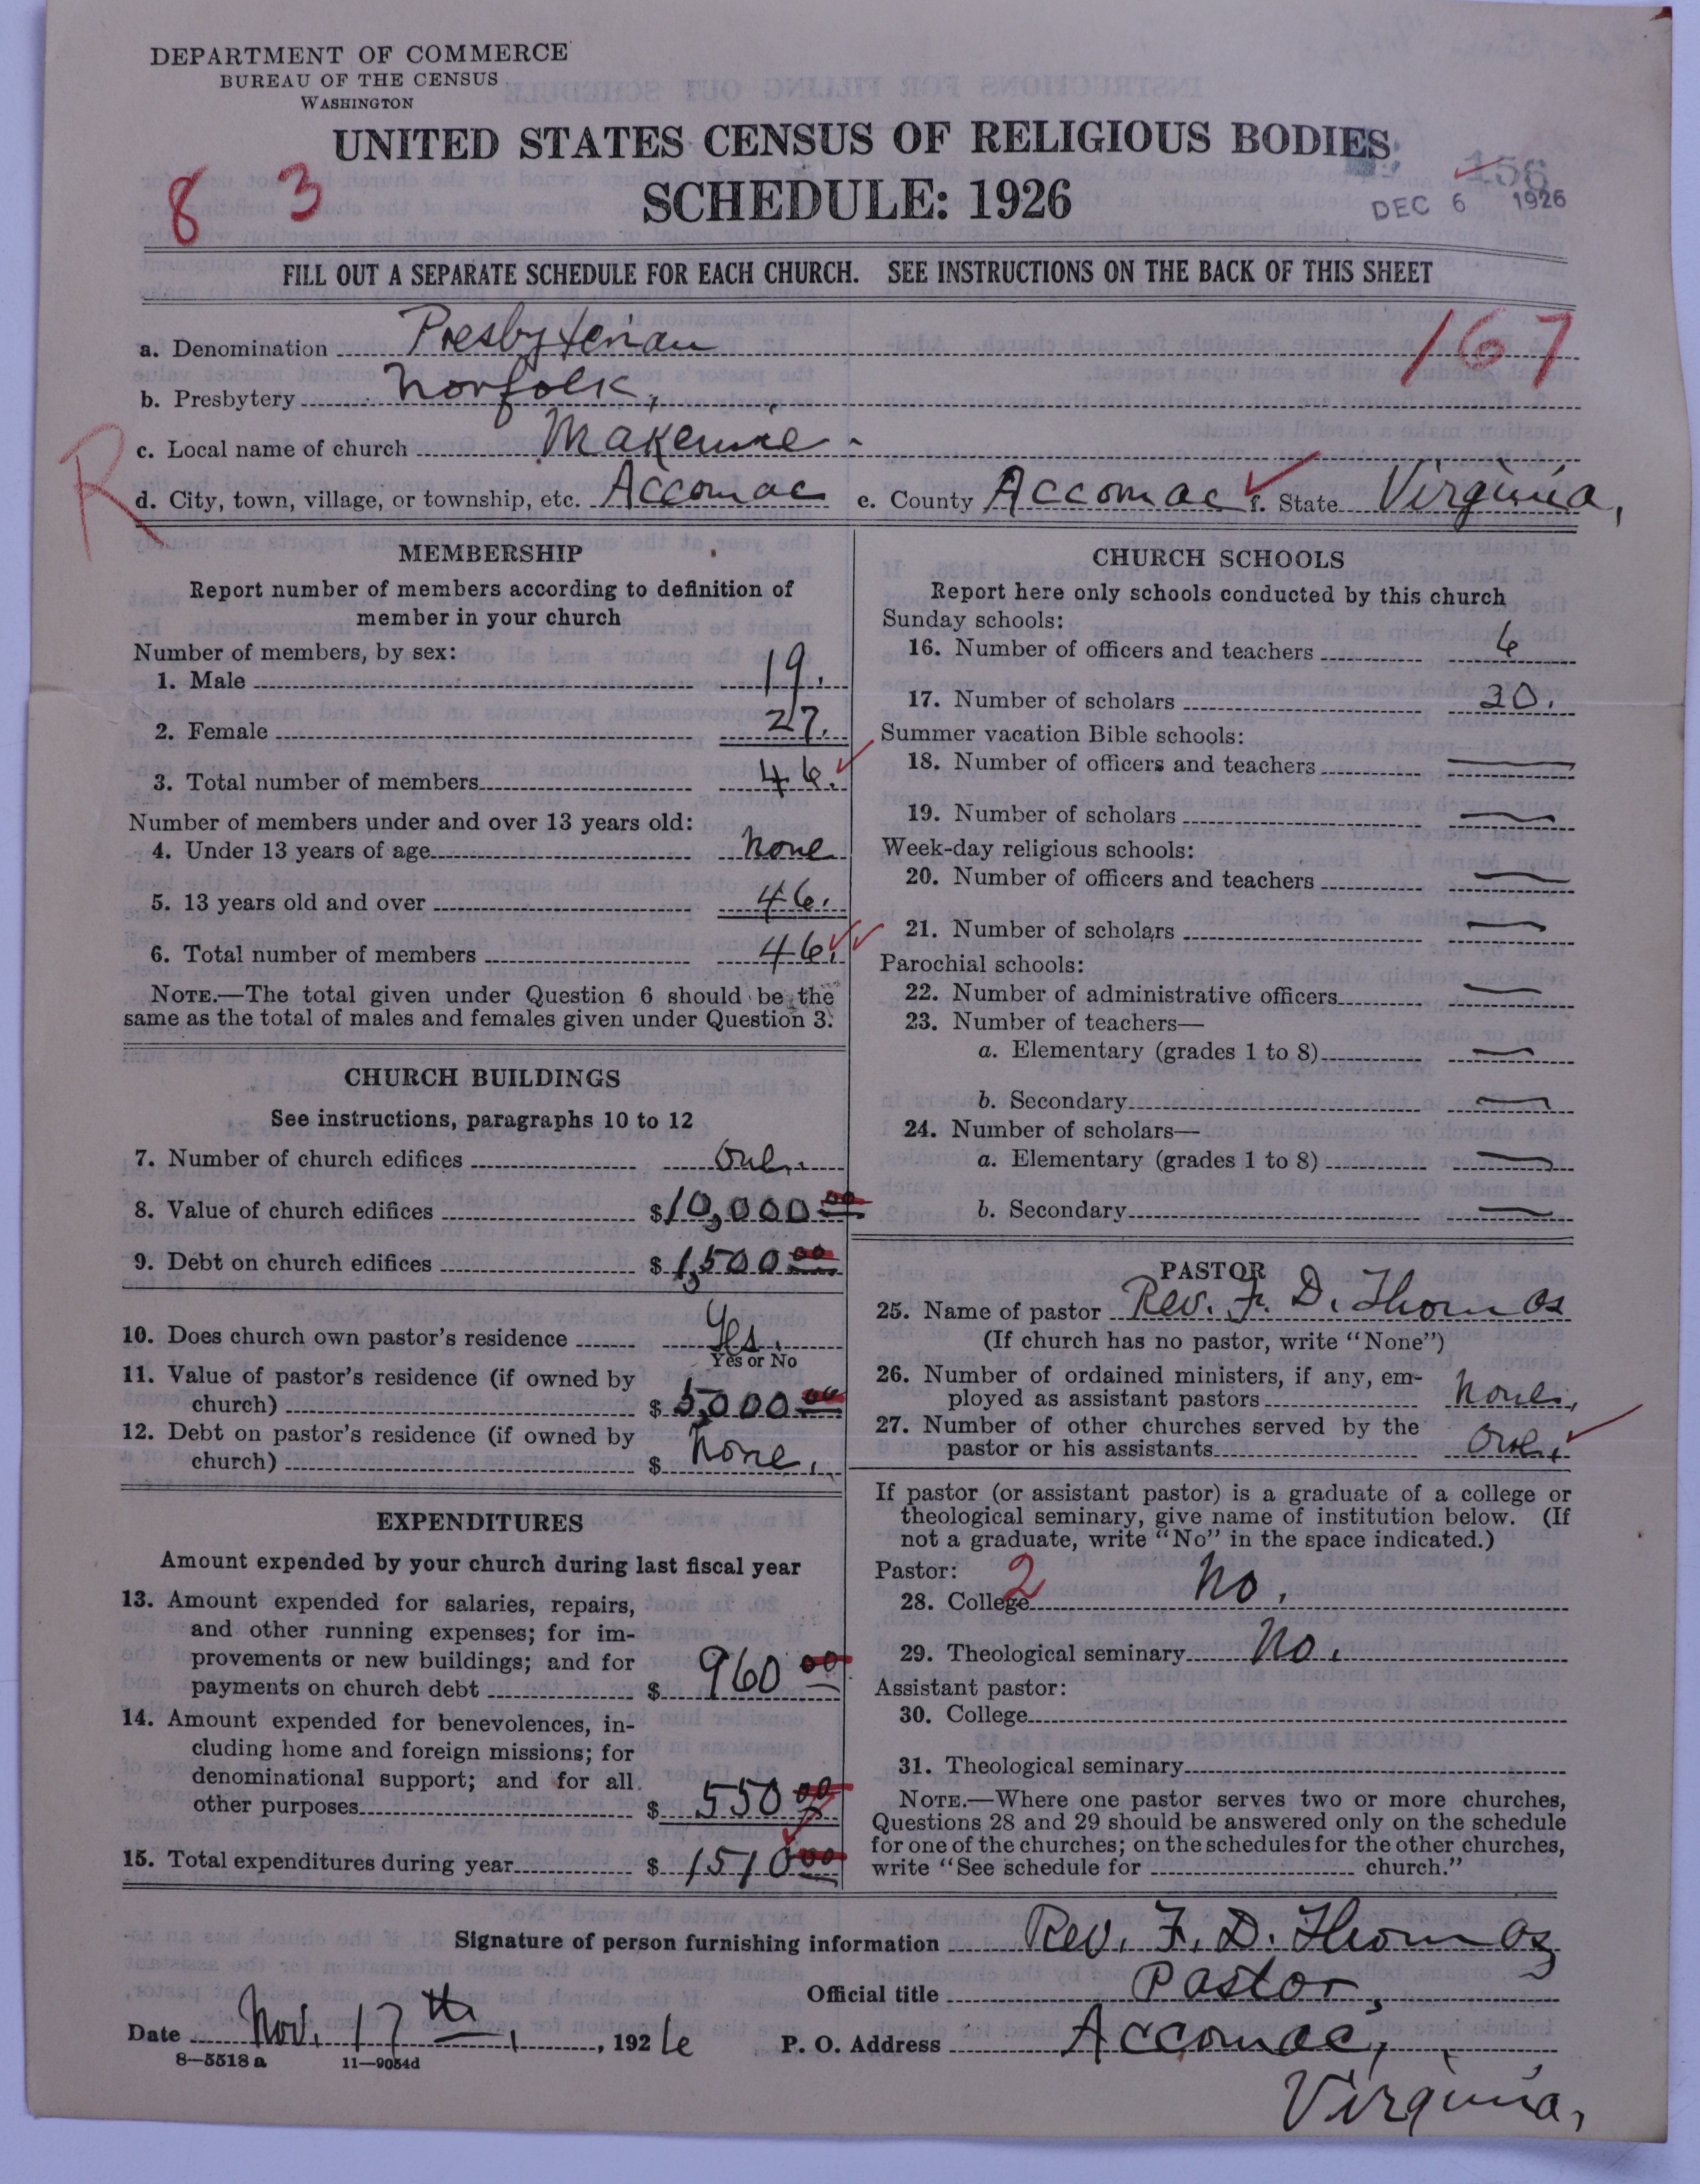 DEPARTMENT OF COMMERCE
BUREAU OF THE CENSUS
WASHINGTON
UNITED STATES CENSUS OF RELIGIOUS BODIES
SCHEDULE: 1926
8 3
156
DEC 6 1926
FILL OUT A SEPARATE SCHEDULE FOR EACH CHURCH. SEE INSTRUCTIONS ON THE BACK OF THIS SHEET
a. Denomination Presbyterian
167
b. Presbytery Norfolk,
c. Local name of church Makemie
R
d. City, town, village, or township, etc. Accomac e. County Accomac f. State Virginia,
MEMBERSHIP
Report number of members according to definition of
member in your church
Number of members, by sex:
1. Male 19.
2. Female 27.
3. Total number of members 46.
Number of members under and over 13 years old:
4. Under 13 years of age None
5. 13 years old and over 46.
6. Total number of members 46.
NOTE.—The total given under Question 6 should be the
same as the total of males and females given under Question 3.
CHURCH BUILDINGS
See instructions, paragraphs 10 to 12
7. Number of church edifices One.
8. Value of church edifices $10,000 00
9. Debt on church edifices $1,500 00
10. Does church own pastor's residence Yes.
Yes or No
11. Value of pastor's residence (if owned by
church) $5,000 00
12. Debt on pastor's residence (if owned by
church) $ None.
EXPENDITURES
Amount expended by your church during last fiscal year
13. Amount expended for salaries, repairs,
and other running expenses; for im-
provements or new buildings; and for
payments on church debt $ 960 00
14. Amount expended for benevolences, in-
cluding home and foreign missions; for
denominational support; and for all
other purposes $ 550 00
15. Total expenditures during year $ 1510 00
CHURCH SCHOOLS
Report here only schools conducted by this church
Sunday schools:
16. Number of officers and teachers 6
17. Number of scholars 30.
Summer vacation Bible schools:
18. Number of officers and teachers —
19. Number of scholars —
Week-day religious schools:
20. Number of officers and teachers —
21. Number of scholars —
Parochial schools:
22. Number of administrative officers —
23. Number of teachers—
a. Elementary (grades 1 to 8) —
b. Secondary —
24. Number of scholars—
a. Elementary (grades 1 to 8) —
b. Secondary —
PASTOR
25. Name of pastor Rev. F. D. Thomas
(If church has no pastor, write "None")
26. Number of ordained ministers, if any, em-
ployed as assistant pastors None.
27. Number of other churches served by the
pastor or his assistants One.
If pastor (or assistant pastor) is a graduate of a college or
theological seminary, give name of institution below. (If
not a graduate, write "No" in the space indicated.)
Pastor: 2
28. College No.
29. Theological seminary No.
Assistant pastor:
30. College
31. Theological seminary
NOTE.—Where one pastor serves two or more churches,
Questions 28 and 29 should be answered only on the schedule
for one of the churches; on the schedules for the other churches,
write "See schedule for church."
Signature of person furnishing information Rev. F. D. Thomas
Official title Pastor,
Date Nov. 17th, 1926 P. O. Address Accomac,
8—5518 a 11—9054d
Virginia,